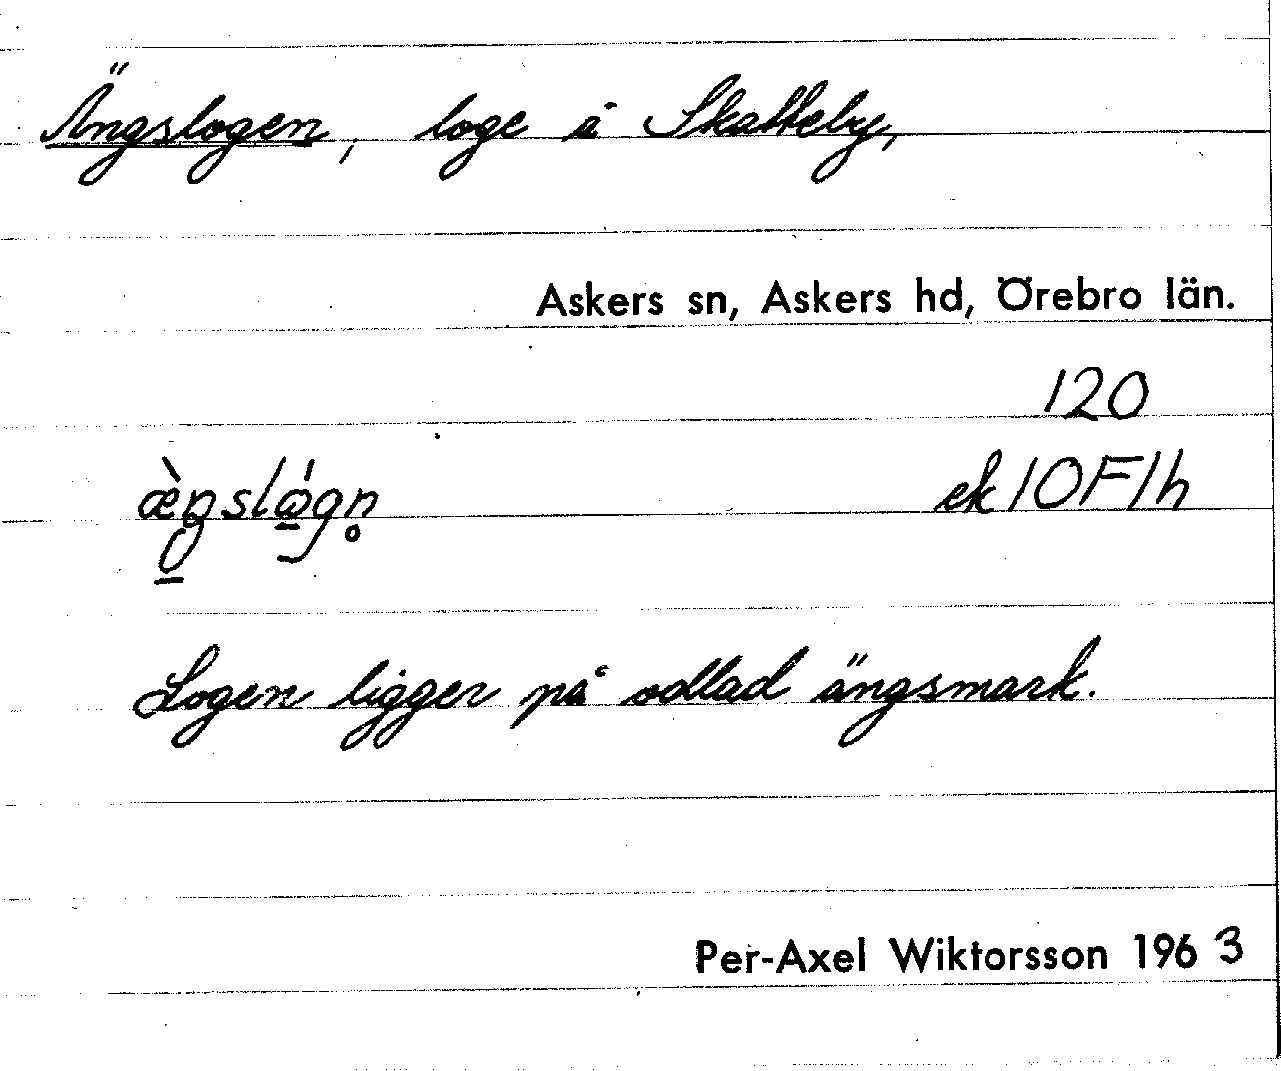 Ängslogen, loge å Skatteby,
Askers sn, Askers hd, Örebro län.
120
æ̀ŋslǫ́gn̥ ek 10F1h
Logen ligger på odlad ängsmark.
Per-Axel Wiktorsson 1963